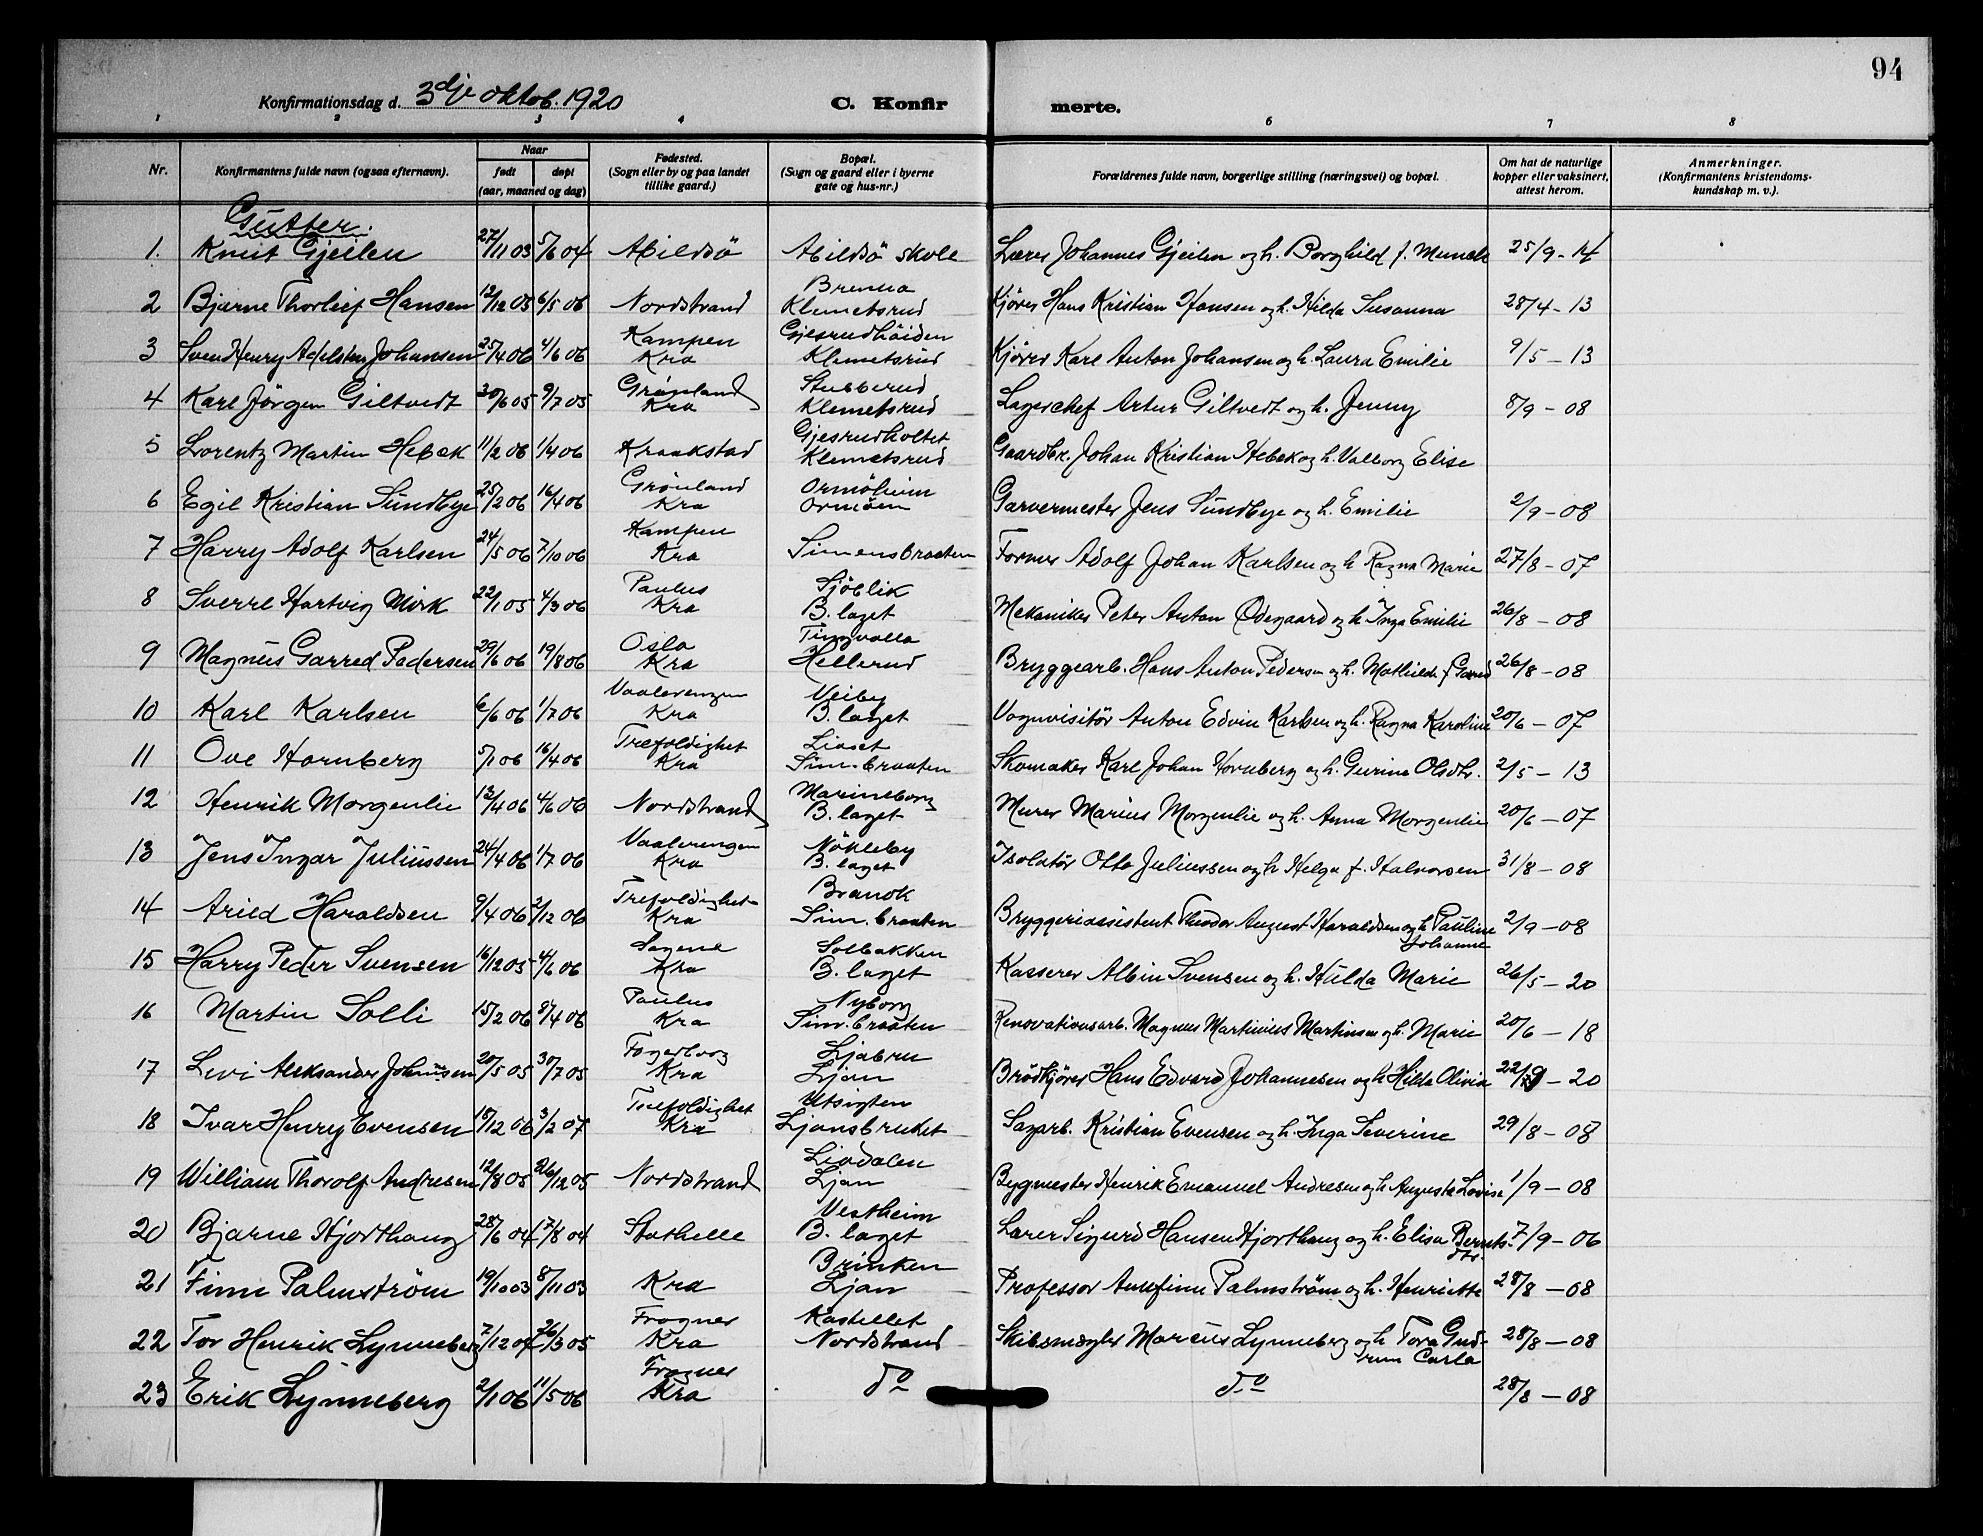 94
Konfirmationsdag d. 3dje oktob. 1920 C. Konfir merte.
1 2 3 4 6 7 8
Nr. Konfirmantens fulde navn (ogsaa efternavn). Naar født døpt (aar, maaned og dag) Fødested. (Sogn eller by og paa landet tillike gaard.) Bopæl. (Sogn og gaard eller i byerne gate og hus-nr.) Forældrenes fulde navn, borgerlige stilling (næringsvei) og bopæl. Om hat de naturlige kopper eller vaksinert, attest herom. Anmerkninger. (Konfirmantens kristendoms-kundskap m. v.).
Gutter.
1. Knut Gjeilen 27/11 03 5/6 04 Abildsö Abildsö skole Lærer Johannes Gjeilen og h. Borghild f. Munch 25/9 - 14
2 Bjarne Thorleif Hansen 12/12 05 6/5 06 Nordstrand Brenna Klemetsrud Kjörer Hans Kristian Hansen og h. Hilda Susanna 28/4 - 13
3 Sven Henry Adelsten Johansen 25/4 06 4/6 06 Kampen Kra Gjesrudhöiden Klemetsrud Kjörer Karl Anton Johansen og h. Laura Emilie 9/5 - 13
4 Karl Jörgen Giltvedt 30/6 05 9/7 05 Grønland Kra Stubberud Klemetsrud Lagerchef Artur Giltvedt og h. Jenny 8/9 - 08
5 Lorentz Martin Hebek 11/2 06 1/4 06 Kraakstad Gjesrudholtet Klemetsrud Gaardbr. Johan Kristian Hebek og h. Valborg Elise
6 Egil Kristian Sundbye 25/2 06 16/4 06 Grönland Kra Ormöheim Ormöen Garvermester Jens Sundbye og h. Emilie 2/9 - 08
7 Harry Adolf Karlsen 24/5 06 7/10 06 Kampen Kra Simensbraaten Former Adolf Johan Karlsen og h Ragna Marie 27/8 - 07
8 Sverre Hartvig Mörk 22/1 05 4/3 06 Paulus Kra Sjöblik B. laget Mekaniker Peter Anton Ödegaard og h Inga Emilie 26/8 - 08
9 Magnus Garred Pedersen 29/6 06 19/8 06 Oslo Kra Tingvalla Hellerud Bryggearb. Hans Anton Pedersen og h. Mathilde f Garred 26/8 - 08
10 Karl Karlsen 6/6 06 1/7 06 Vaalerengen Kra Veiby B. laget Vognvisitör Anton Edvin Karlsen og h. Ragna Karoline 20/6 - 07
11 Ove Hornberg 5/1 06 16/4 06 Trefoldighet Kra Liaset Sim. braaten Skomaker Karl Johan Hornberg og h. Gurine Olsdtr. 2/5 - 13
12 Henrik Morgenlie 13/4 06 4/6 06 Nordstrand Marineborg B. laget Murer Marius Morgenlie og h. Anna Morgenlie 20/6 - 07
13 Jens Ingar Juliussen 24/4 06 1/7 06 Vaalerengen Kra Nökleby B. laget Isolatör Otto Juliussen og h Helga f. Halvorsen 31/8 - 08
14 Arild Haraldsen 9/4 06 2/12 06 Trefoldighet Kra Sim. braaten Bryggeriassistent Theodor August Haraldsen og h Pauline Johanne 2/9 - 08
15 Harry Peder Svensen 16/12 05 4/6 06 Sagene Kra Solbakken B. laget Kasserer Albin Svensen og h. Hulda Marie 26/5 - 20
16 Martin Solli 15/2 06 8/4 06 Paulus Kra Nyborg Sim. braaten Renovationsarb. Magnus Martinius Martinsen og h. Marie 20/6 - 18
17 Levi Aleksander Johansen 20/5 05 30/7 05 Fagerborg Kra Ljabru Ljan Brödkjörer Hans Edvard Johannesen og h Hilda Olivia 22/9 - 20
18 Ivar Henry Evensen 15/12 06 3/2 07 Trefoldighet Kra Utsigten Ljansbruket Sagarb. Kristian Evensen og h. Inga Severine 29/8 - 08
19 William Thorolf Andresen 12/8 05 26/12 05 Nordstrand Liadalen Ljan Bygmester Henrik Emanuel Andresen og h Augusta Lovise 1/9 - 08
20 Bjarne Hjorthaug 28/6 04 17/8 04 Stathelle Vestheim B. laget Lærer Sigurd Hansen Hjorthaug og h. Elisa Berntsdtr. 7/9 - 06
21 Finn Palmström 19/10 03 8/11 03 Kra Brinken Ljan Professor Arnfinn Palmström og h. Henriette 28/8 - 08
22 Tor Henrik Lynneberg 7/12 04 26/3 05 Frogner Kra Kastellet Nordstrand Skibsmægler Marcus Lynneberg og h Tora Gudrun Carla 28/8 - 08
23 Erik Lynneberg 2/1 06 11/5 06 Frogner Kra do do 28/8 - 08